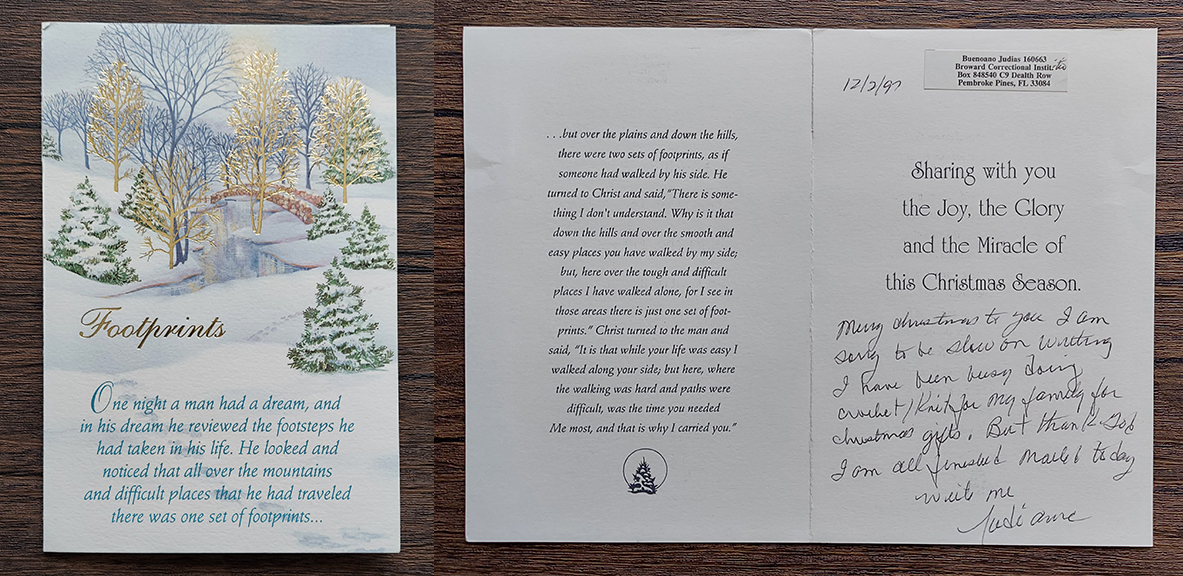 Footprints
One night a man had a dream, and
in his dream he reviewed the footsteps he
had taken in his life. He looked and
noticed that all over the mountains
and difficult places that he had traveled
there was one set of footprints...
. . .but over the plains and down the hills,
there were two sets of footprints, as if
someone had walked by his side. He
turned to Christ and said,“There is some-
thing I don't understand. Why is it that
down the hills and over the smooth and
easy places you have walked by my side;
but, here over the tough and difficult
places I have walked alone, for I see in
those areas there is just one set of foot-
prints.” Christ turned to the man and
said, “It is that while your life was easy I
walked along your side; but here, where
the walking was hard and paths were
difficult, was the time you needed
Me most, and that is why I carried you.”
12/2/97
Buenoano Judias 160663
Broward Correctional Institu
Box 848540 C9 Dealth Row
Pembroke Pines, FL 33084
Sharing with you
the Joy, the Glory
and the Miracle of
this Christmas Season.
Merry christmas to you I am
sorry to be slow on writing
I have been busy doing
crochet/Knit for my family for
christmas gifts. But thank God
I am all finished mailed today
write me
Judi anne